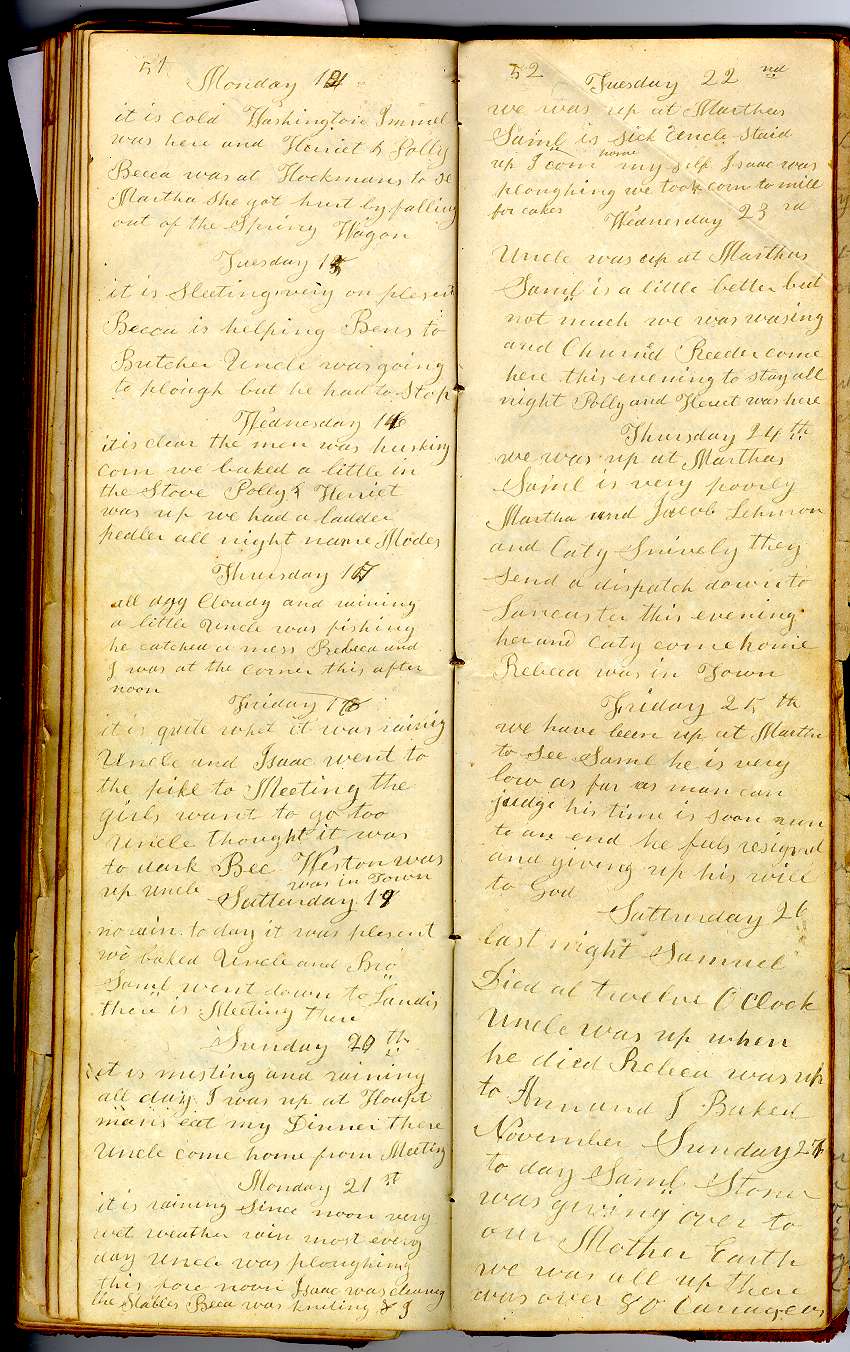 51
Monday 14
it is cold Washington Immel
was here and Heriet & Polly
Becca was at Hockmans to se
Martha she got hurt by falling
out of the Spring Wagon
Tuesday 15
it is Sleeting very on plesent
Becca is helping Bens to
Butcher Uncle was going
to plough but he had to Stop
Wednesday 16
it is clear the men was husking
corn we baked a little in
the Stove Polly & Herriet
was up we had a ladder
pedler all night name Modes
Thursday 17
all day Cloudy and raining
a little Uncle was fishing
he catched a mess Rebeca and
I was at the corner this after
noon
Friday 18
it is quite whet it was rainig
Uncle and Isaac went to
the pike to Meeting the
girls want to go too
Uncle thought it was
to dark Bec Weston was
up Uncle was in Town
Satturday 19
no rain to day it was plesent
we baked Uncle and Bro
Saml went down to Landis
there is Meeting there
Sunday 20 th
it is misting and raining
all day I was up at Houft
mans eat my Dinner there
Uncle come home from Meeting
Monday 21 st
it is raining Since noon very
wet weather rain most every
day Uncle was ploughing
this fore noon Isaac was cleaning
the Stables Beca was kniting & I
52
Tuesday 22 nd
we was up at Marthas
Saml is Sick Uncle Staid
up I com home my self Isaac was
ploughing we took corn to mill
for cakes
Wednesday 23 rd
Uncle was up at Marthas
Saml is a little better but
not much we was wasing
and Churnd Reeder come
here this evening to stay all
night Polly and Heriet was here
Thursday 24 th
we was up at Marthas
Saml is very poorly
Martha and Jacob Lehman
and Caty Snively they
Send a dispatch down to
Lancaster this evening
her and Caty come home
Rebeca was in Town
Friday 25 th
we have been up at Martha
to See Saml he is very
low as far as man can
judge his time is soon run
to an end he feels resignd
and giving up his will
to God
Satturday 26
last night Samuel
Died at twelve O Clock
Uncle was up when
he died Rebeca was up
to Ann and I Baked
November Sunday 27
to day Saml Stoner
was giving over to
our Mother Earth
we was all up there
was over 80 Carriages